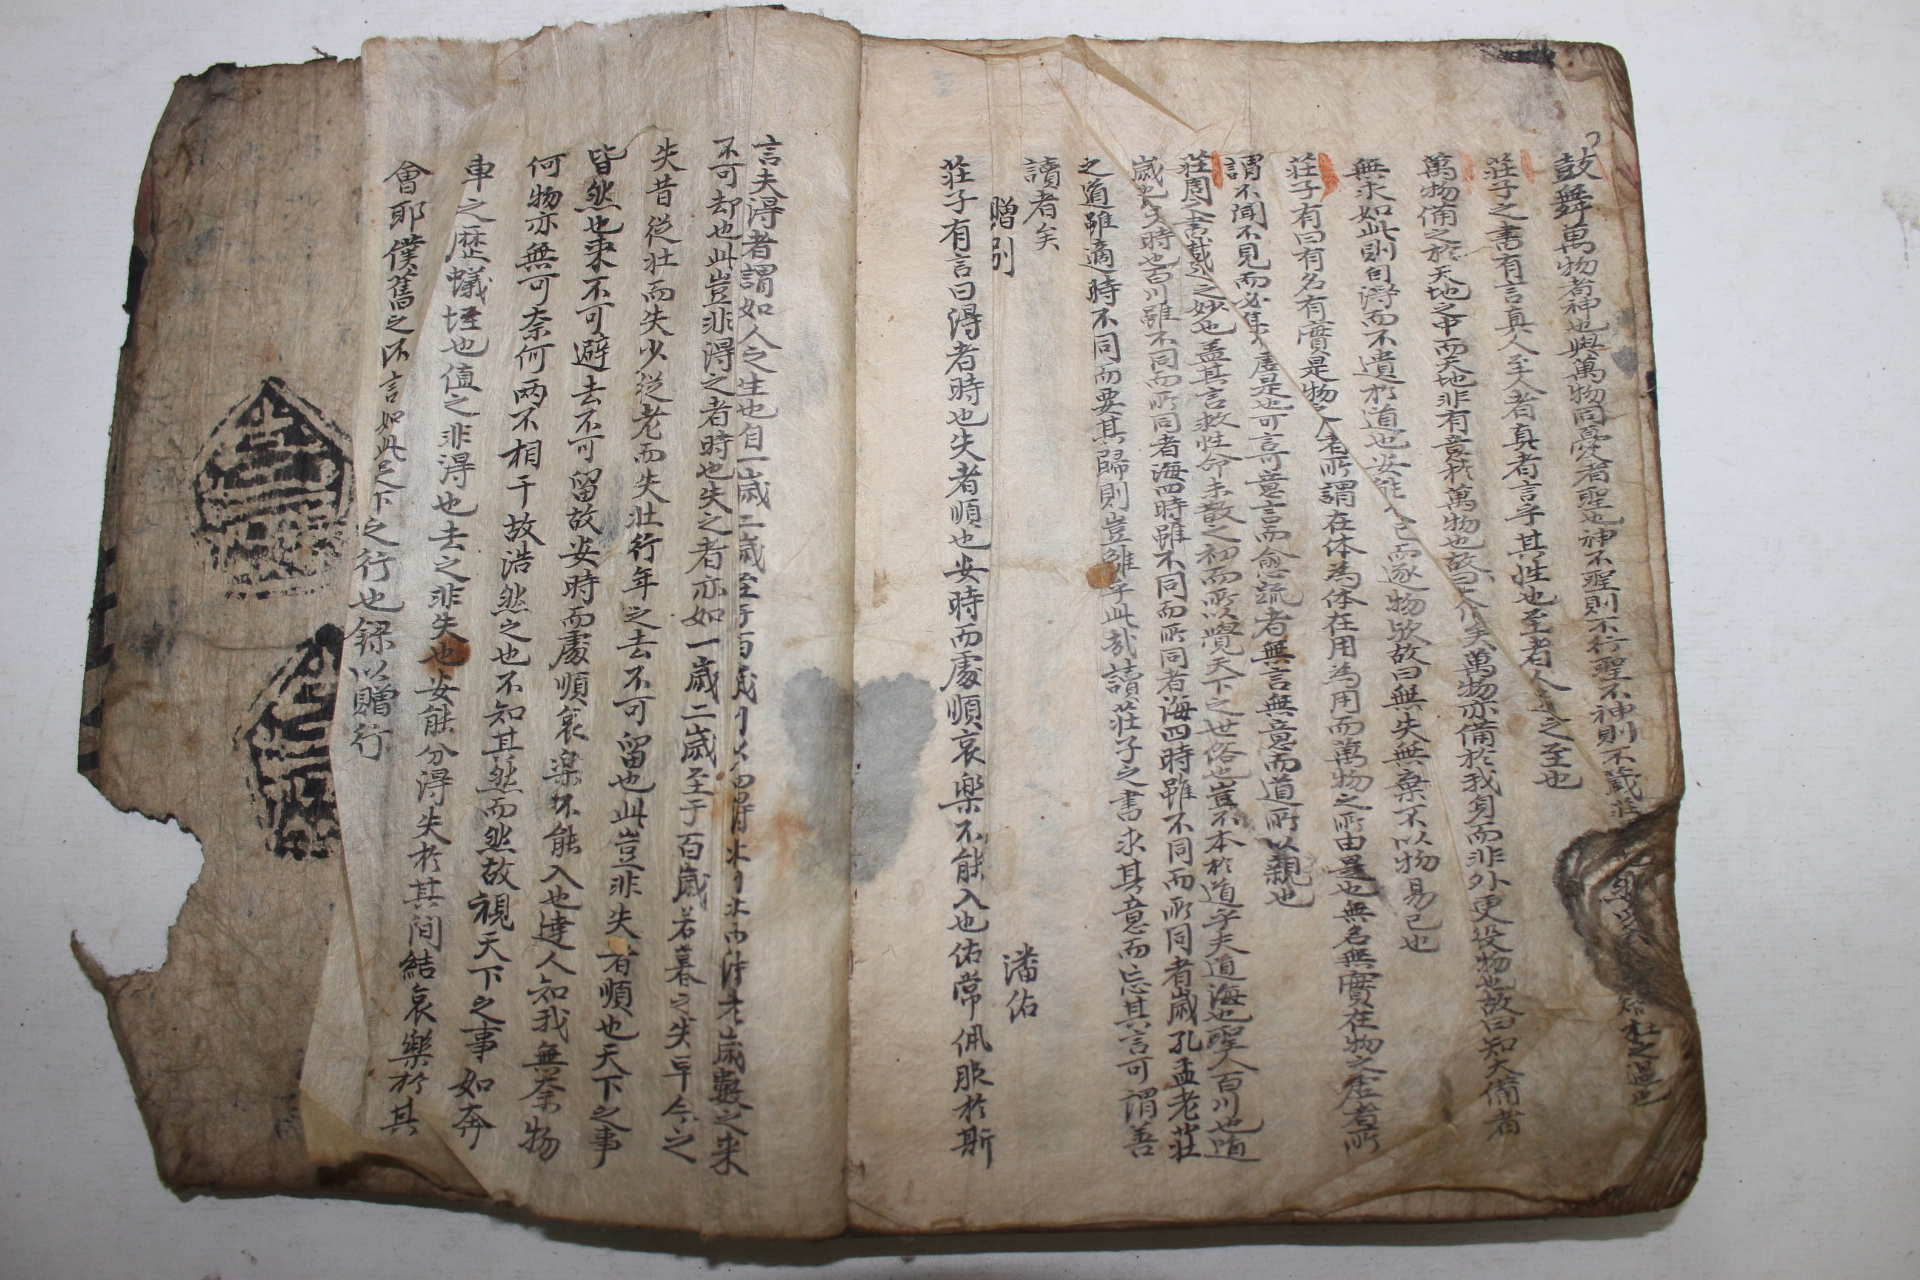 鼓舞萬物者神也與萬物同憂者聖也神不聖則不行聖不神則不藏莊
莊子之書有言真人至人者真者言乎其性也至者人道之至也
萬物備之於天地之中而天地非有意於萬物也故曰大備矣萬物亦備於我身而非外更役物也故曰知大備者
無求如此則自得而不遺於道也安能 已而逐物欤故曰無失無棄不以物易已也
莊子有曰有名有實是物之 者所謂在体為体在用為用而萬物之所由是也無名無實在物之虛者所
謂不聞不見而必集 虛是也可言可意言而愈疏者無言無意而道所以親也
莊周之書載道之妙也盖其言救性命未散之初而所以覺天下之世俗也豈不本於道乎夫道海也聖人百川也道
歲也 時也百川雖不同而所同者海四時雖不同而所同者海四時雖不同而所同者歲孔孟老莊
之道雖適時不同而要其歸則豈離乎此哉讀莊子之書求其意而忘其言可謂善
讀者矣
贈別 潘佑
莊子有言曰得者時也失者順也安時而處順哀樂不能入也佑常佩服於斯
言夫得者謂如人之生也自一歲二歲至于百歲 得 老歲數之来
不可却也此豈非得之者時也失之者亦如一歲二歲至于百歲若暮之失早今之
失昔從壮而失少從老而失壮行年之去不可留也此豈非失者順也天下之事
皆然也来不可避去不可留故安時而處順哀樂不能入也達人知我無奈物
何物亦無可奈何兩不相干故浩然之也不知其然而然故視天下之事如奔
車之歷蟻垤也值之非得也去之非失也安能分得失於其間結哀樂於其
會耶僕舊之不言如此足下之行也録以贈行